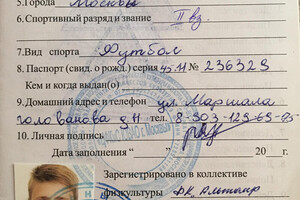 5.Города Москвы
6.Спортивный разряд и звание II вз.
7.Вид спорта Футбол
8.Паспорт (свид. о рожд.) серия 45-11 № 236329
Кем и когда выдан(о)
9.Домашний адрес и телефон ул. Маршала
Голованова д.11 тел. 8-903-129-69-95
10. Личная подпись
Дата заполнения " " 20 г.
Зарегистрировано в коллективе
физкультуры ФК,